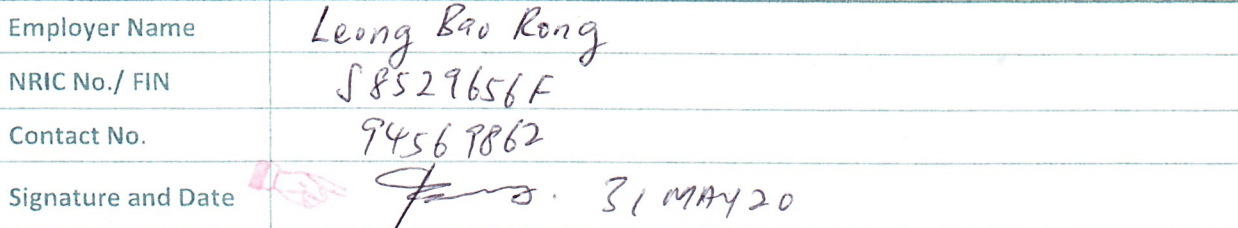 Employer Name Leong Bao Rong
NRIC No./ FIN S8529656F
Contact No. 94569862
Signature and Date 31 MAY 20